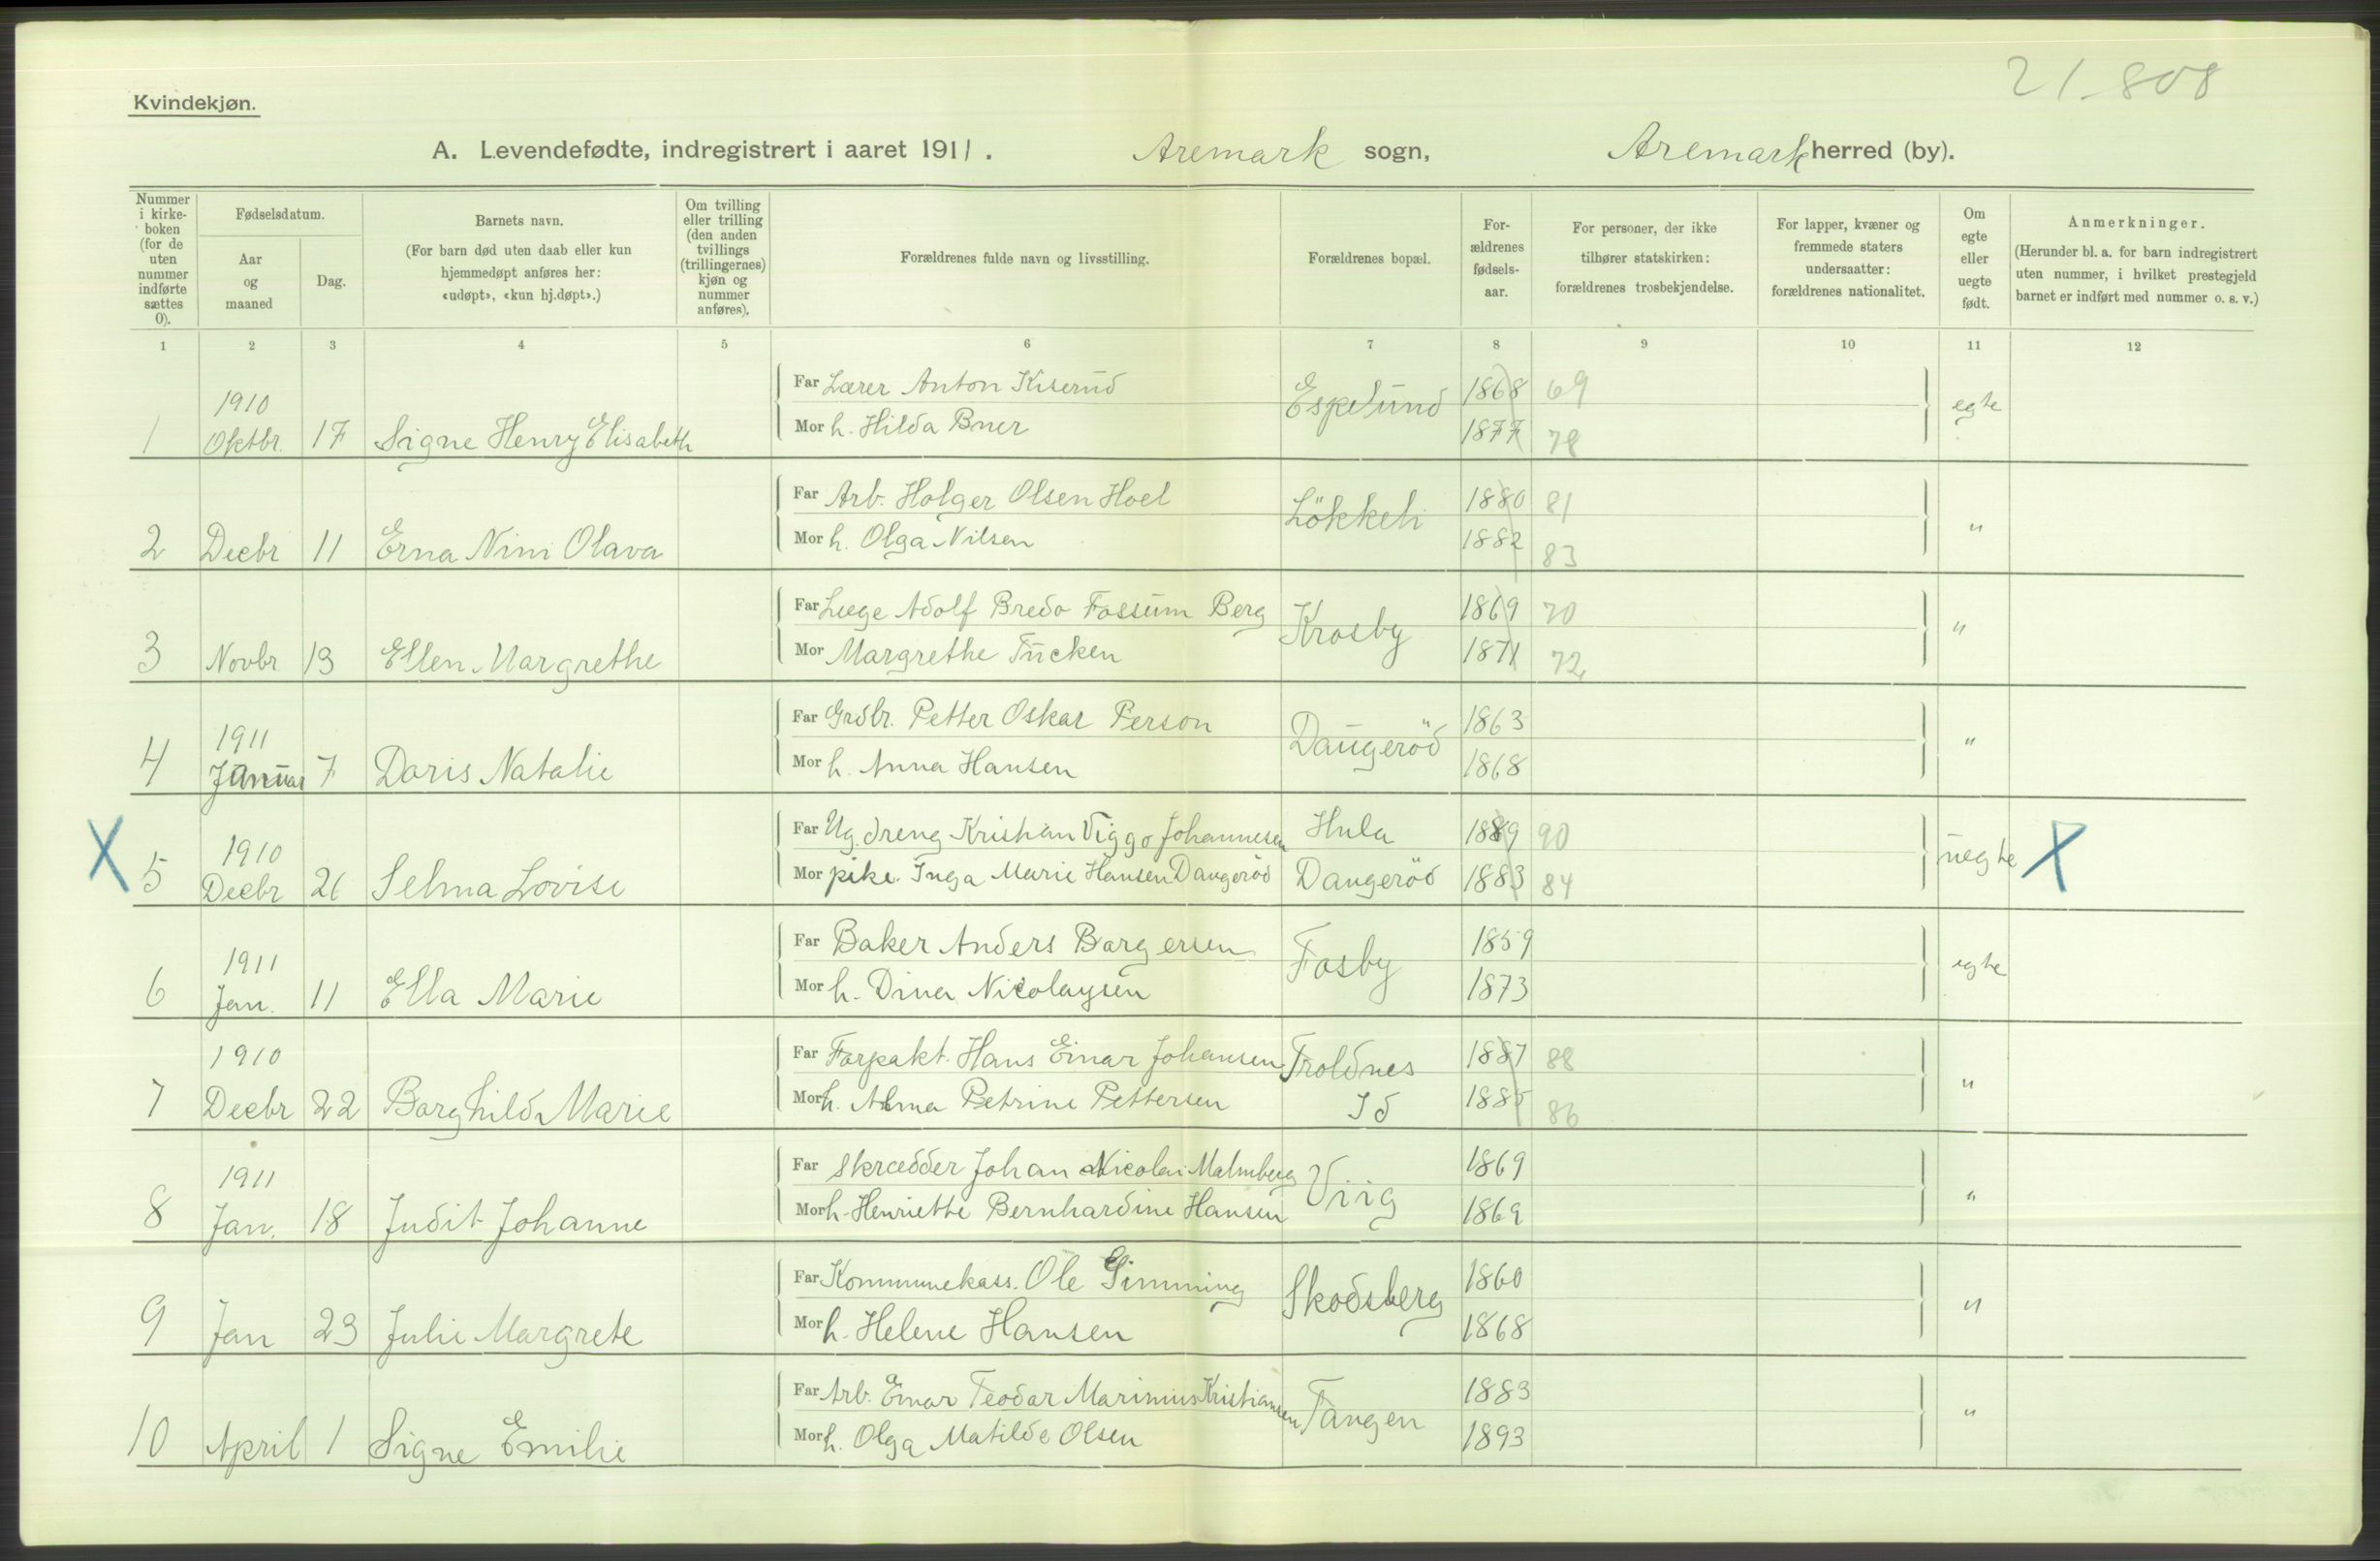 21-808
Kvindekjøn.
A. Levendefødte, indregistrert i aaret 1911. Aremark sogn, Aremark herred (by).
Nummer i kirke-boken (for de uten nummer indførte sættes 0).
Fødselsdatum.
Aar og maaned
Dag.
Barnets navn.
(For barn død uten daab eller kun hjemmedøpt anføres her: «udøpt», «kun hj.døpt».)
Om tvilling eller trilling (den anden tvillings (trillingernes) kjøn og nummer anføres).
Forældrenes fulde navn og livsstilling.
Forældrenes bopæl.
For-ældrenes fødsels-aar.
For personer, der ikke tilhører statskirken: forældrenes trosbekjendelse.
For lapper, kvæner og fremmede staters undersaatter: forældrenes nationalitet.
Om egte eller uegte født.
Anmerkninger.
(Herunder bl. a. for barn indregistrert uten nummer, i hvilket prestegjeld barnet er indført med nummer o. s. v.)
1 2 3 4 5 6 7 8 9 10 11 12
Far Lærer Anton Kiserud Espelund 1868 69
1 1910 Oktbr. 17 Signe Henry Elisabeth egte
Mor h. Hilda Bner 1877 78
Far Arb. Holger Olsen Hoel Lökkeli 1880 81
2 Decbr 11 Erna Nini Olava "
Mor h. Olga Nilsen 1882 83
Far Læge Adolf Bredo Fossum Berg Krosby 1869 70
3 Novbr 13 Ellen Margrethe "
Mor Margrethe Fücken 1871 72
Far Grdbr. Petter Oskar Person Daugeröd 1863
4 1911 Januar 7 Doris Natalie "
Mor h. Anna Hansen 1868
Far Ug. dreng Kristian Viggo Johannesen Hula 1889 90
X 5 1910 Decbr 26 Selma Lovise uegte X
Mor pike. Inga Marie Hansen Daugeröd Daugeröd 1883 84
Far Baker Anders Borgersen Fosby 1859
6 1911 Jan. 11 Ella Marie egte
Mor h. Dina Nicolaysen 1873
Far Forpakt. Hans Einar Johansen Troldnes 1887 88
7 1910 Decbr 22 Borghild Marie "
Mor h. Alma Petrine Pettersen Id 1885 86
Far Skrædder Johan Nicolai Malmberg Viig 1869
8 1911 Jan. 18 Judit Johanne "
Mor h. Henriette Bernhardine Hansen 1869
Far Kommunekass. Ole Gimming Skodsberg 1860
9 Jan 23 Julie Margrete "
Mor h. Helene Hansen 1868
Far Arb. Einar Teodor Marinius Kristiansen Tangen 1883
10 April 1 Signe Emilie "
Mor h. Olga Matilde Olsen 1893